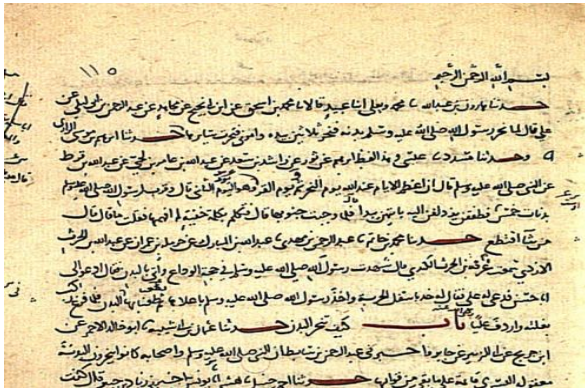 بسم الله الرحمن الرحيم ١١٥
حدثنا هارون بن عبدالله نا محمد ويعلى ابنا عبيد قالا نا محمد بن اسحق عن ابن ابي نجيح عن مجاهد عن عبد الرحمن بن ابي ليلى عن
علي قال لما نحر رسول الله صلى الله عليه وسلم بدنه فنحر ثلاثين بيده وامرني فنحرت سايرها حدثنا ابرهيم بن موسى الرازي
وحدثنا مسدد نا عيسى وهذا لفظ ابرهيم عن ثور عن راشد بن سعد عن عبد الله بن عامر بن لحي عن عبد الله بن قرط
عن النبي صلى الله عليه وسلم قال ان اعظم الايام عند الله يوم النحر ثم يوم القر وهو اليوم الثاني قال وقرب لرسول الله صلى الله عليه وسلم
بدنات خمس فطفقن يزدلفن اليه بايتهن يبدا فلما وجبت جنوبها قال فتكلم بكلمة خفية لم افهمها فقلت ما قال قال
من شا اقتطع حدثنا محمد بن حاتم نا عبد الرحمن بن مهدي نا عبد الله بن المبارك عن حرملة بن عمران عن عبد الله بن الحرث
الازدي سمعت غرفة بن الحرث الكندي قال شهدت رسول الله صلى الله عليه وسلم في حجة الوداع واتي بالبدن فقال ادعوا لي
ابا حسن فدعي له علي فقال له خذ باسفل الحربة واخذ رسول الله صلى الله عليه وسلم باعلاها ثم طعنا بها البدن فلما فرغ ركب
بغلته واردف عليا باب كيف تنحر البدن حدثنا عثمان بن ابي شيبة نا ابو خالد الاحمر عن
ابن جريج عن ابي الزبير عن جابر واخبرني عبد الرحمن بن سابط ان النبي صلى الله عليه وسلم واصحابه كانوا ينحرون البدنة
معقولة اليسرى قايمة على ما بقي من قوايمها حدثنا احمد بن حنبل نا هشيم انا يونس اخبرني زياد بن جبير قال كنت